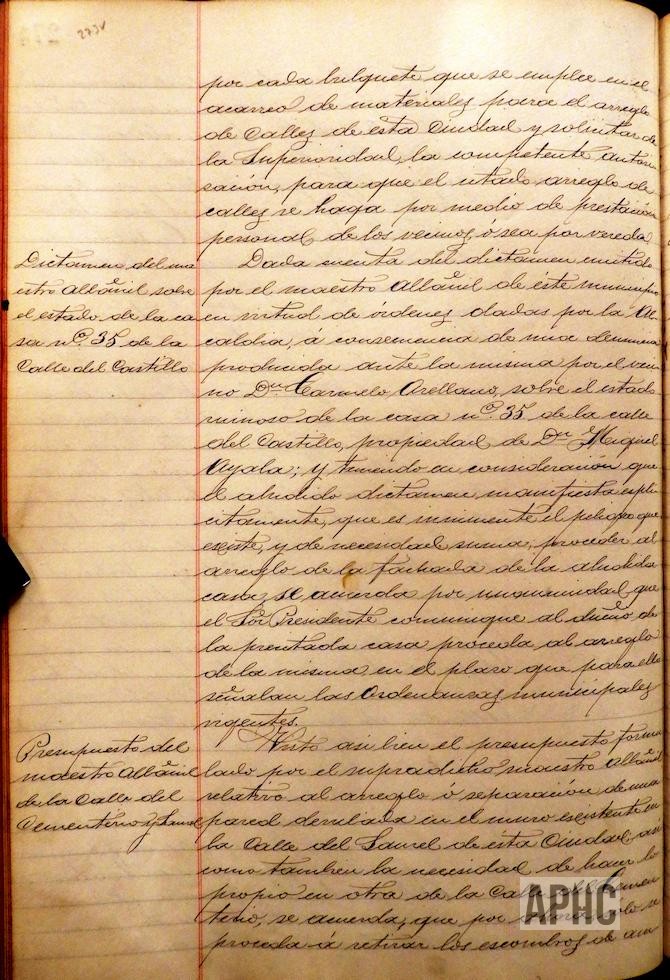 273v
por cada bulquete que se emplee en el
acarreo de materiales para el arreglo
de calles de esta Ciudad y solicitar de
la Superioridad, la competente autori
zación, para que el citado arreglo de
calles se haga por medio de prestación
personal de los vecinos ó sea por vereda.
Dictamen del ma
estro Albañil sobre
el estado de la ca
sa nº 35 de la
Calle del Castillo
Dada cuenta del dictamen emitido
por el maestro Albañil de éste municipio
en virtud de órdenes dadas por la Al
caldia, á consecuencia de una denuncia
producida ante la misma por el veci
no Dn Carmelo Arellano, sobre el estado
ruinoso de la casa nº 35 de la calle
del Castillo, propiedad de Dn Miguel
Ayala; y teniendo en consideración que
el aludido dictamen manifiesta esplí
citamente, que es inminente el peligro que
existe, y de necesidad suma, proceder al
arreglo de la fachada de la aludida
casa, se acuerda por unanimidad que
el Sor Presidente comunique al dueño de
la precitada casa proceda al arreglo
de la misma en el plazo que para ello
señalan las Ordenanzas municipales
vigentes.
Presupuesto del
maestro Albañil
de la Calle del
Cementerio y Laurel
Visto asi bien el presupuesto formu
lado por el supradicho maestro Albañil
relativo al arreglo ó reparación de una
pared derruida en el muro existente en
la Calle del Laurel de esta Ciudad, así
como tambien la necesidad de hacer lo
propio en otra de la Calle del Cemen
terio, se acuerda, que por ahora solo se
proceda á retirar los escombros de am
APHC